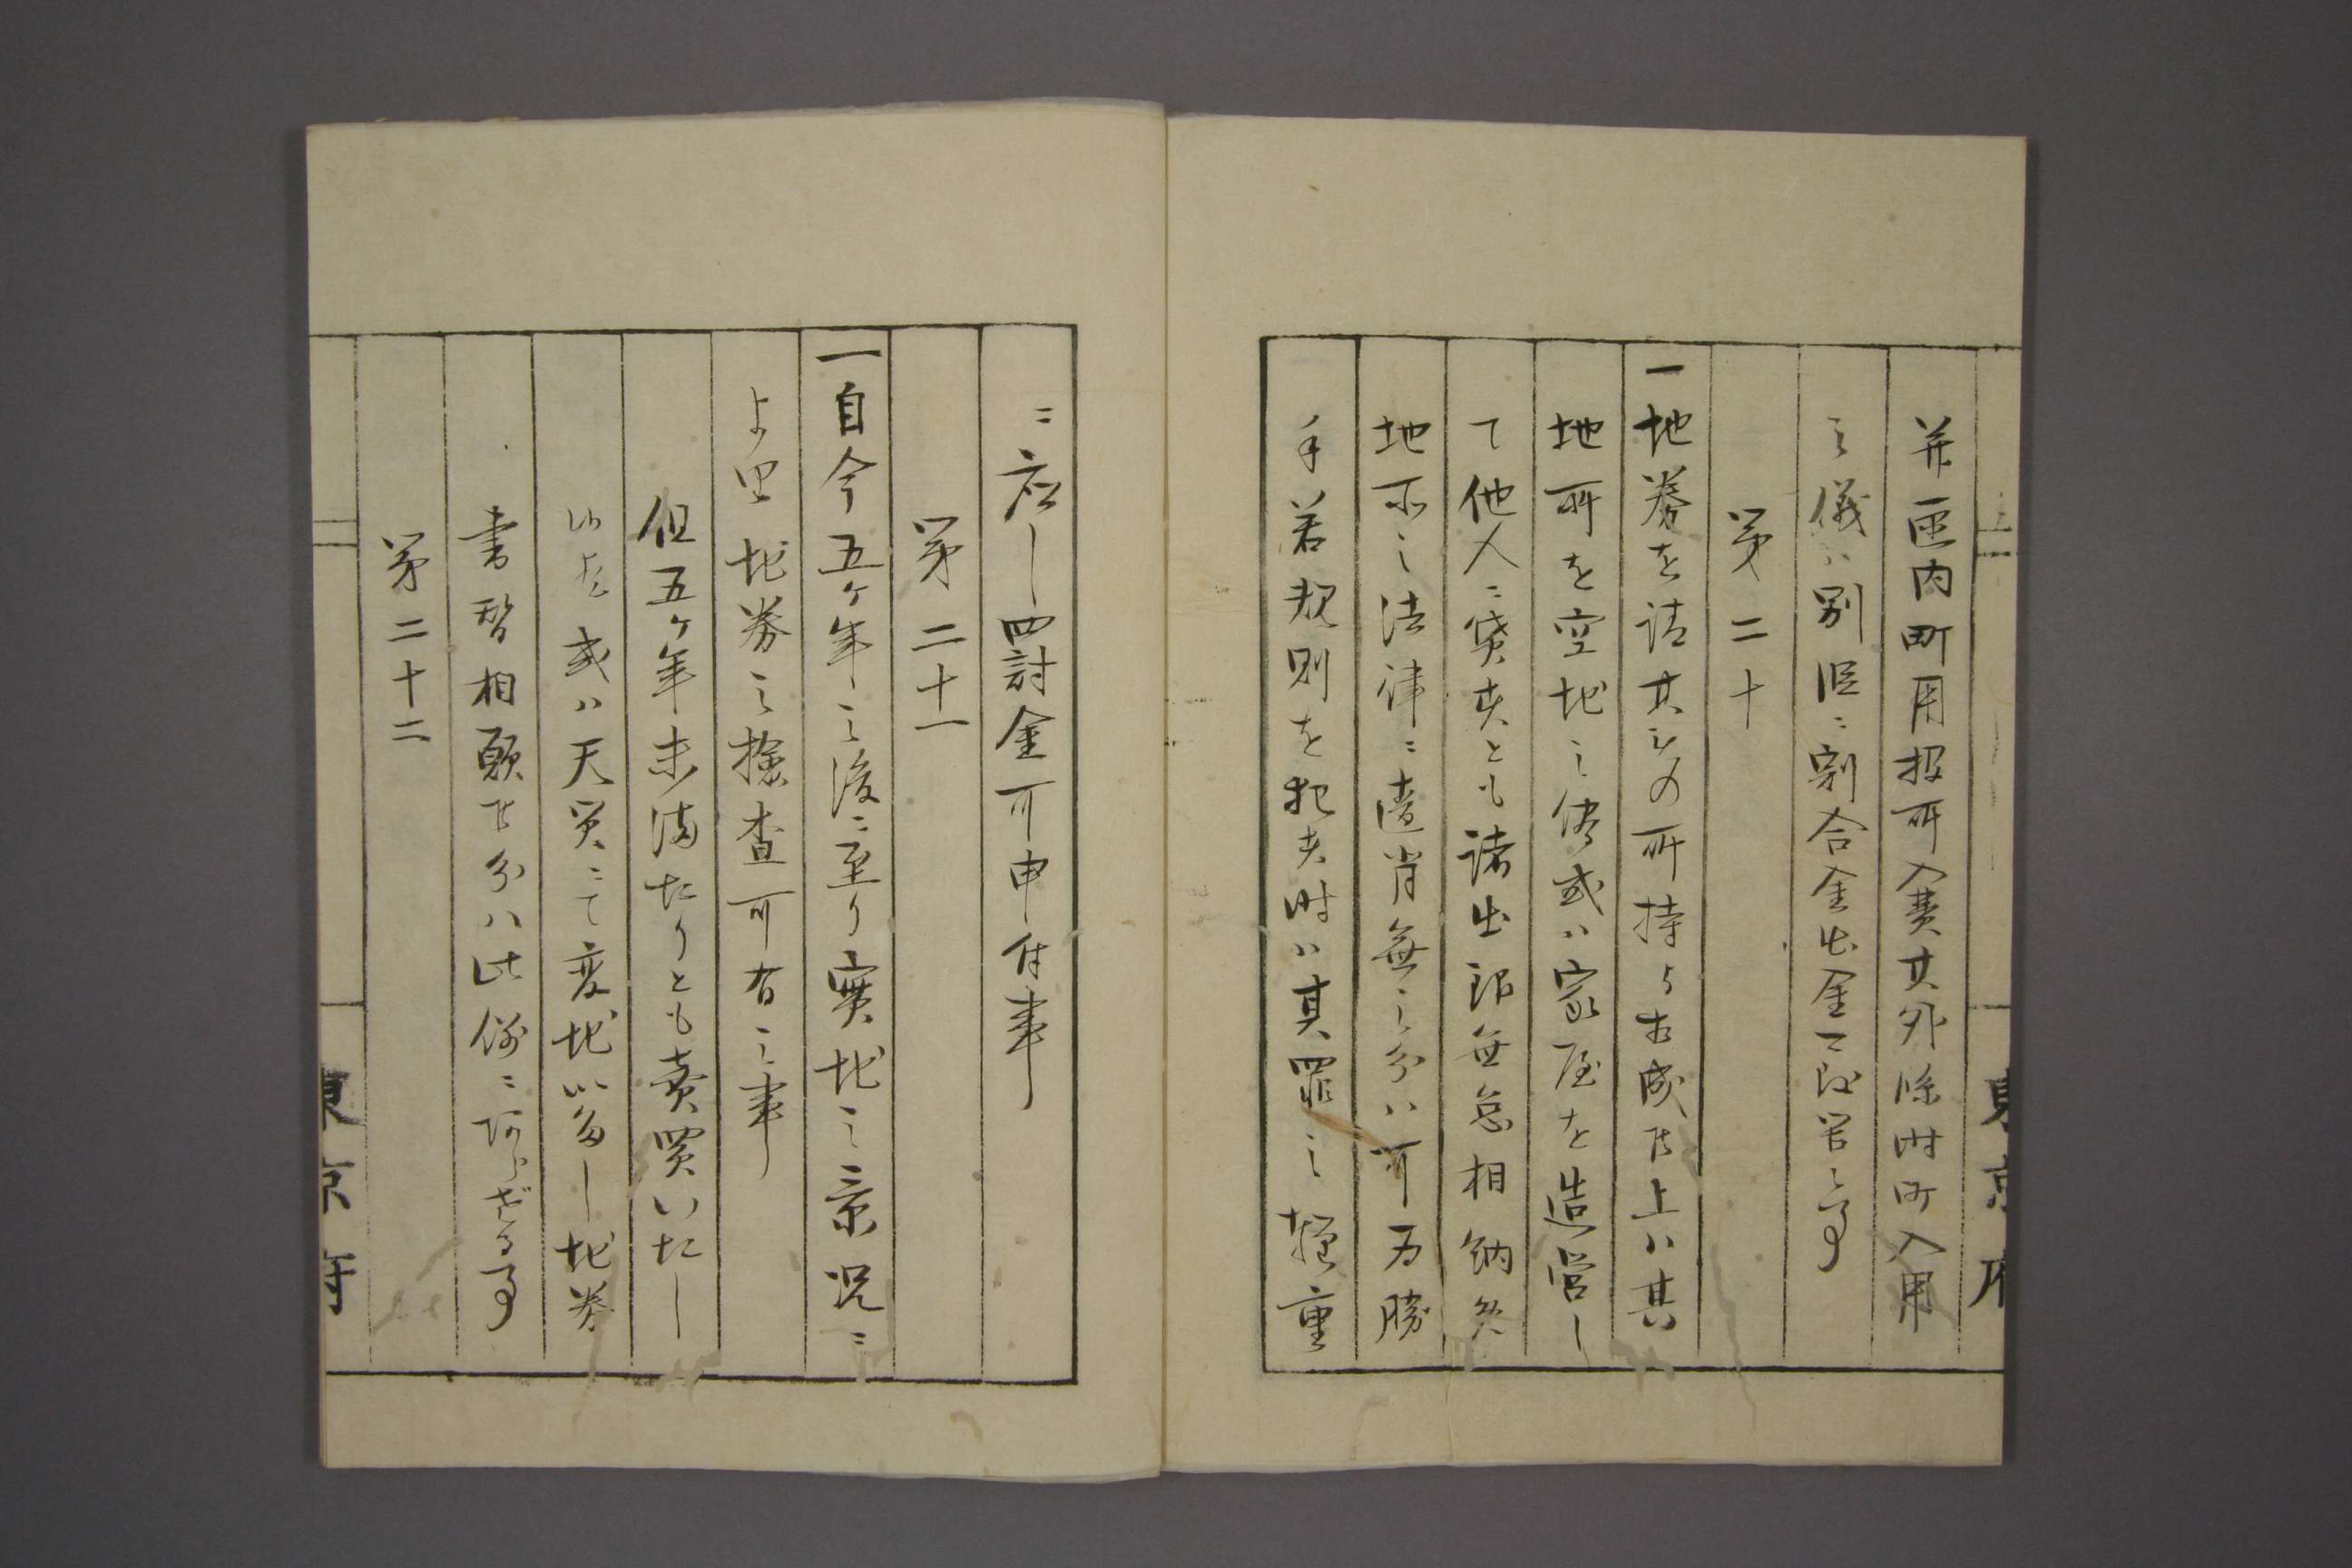 并區内町用扱所入費其外臨時町入用
之儀ハ別段ニ割合金出金可致置事
第二十
一地券を請其もの所持ト相成候上ハ其
地所を空地之侭或ハ家屋を造営し
て他人ニ貸共とも諸出銀無怠相納
地所之法律ニ違背無之分ハ可為勝
手若規則を犯共時ハ其罪之軽重
ニ応し罰金可申付事
第二十一
一自今五ケ年之後ニ至り実地之景况ニ
より地券之検査可有之事
但五ケ年未満たりとも売買いたし
或ハ天災ニて変地いたし地券
書替相願候分ハ此例ニあらざる事
第二十二
東京府
東京府